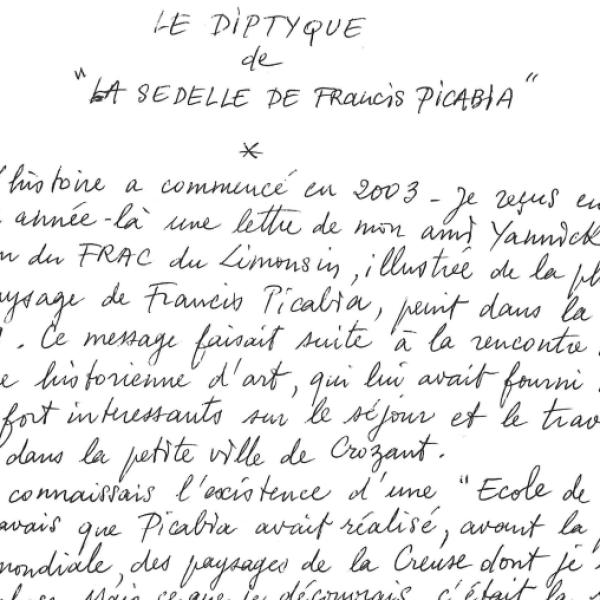 LE DIPTYQUE
de
"LA SEDELLE DE FRancis PICABIA"
*
histoire a commencé en 2003 - Je reçus en
année-là une lettre de mon ami Yannick
du FRAC du Limousin, illustrée de la
aysage de Francis Picabia, peint dans la
. Ce message faisait suite à la rencontre
historienne d'art, qui lui avait fourni
fort interessants sur le séjour et le trav
dans la petite ville de Crozant.
connaissais l'existence d'une "Ecole de
avais que Picabia avait réalisé, avant la
mondiale, des paysages de la Creuse dont je
Mais ce que je découvrais, c'était la